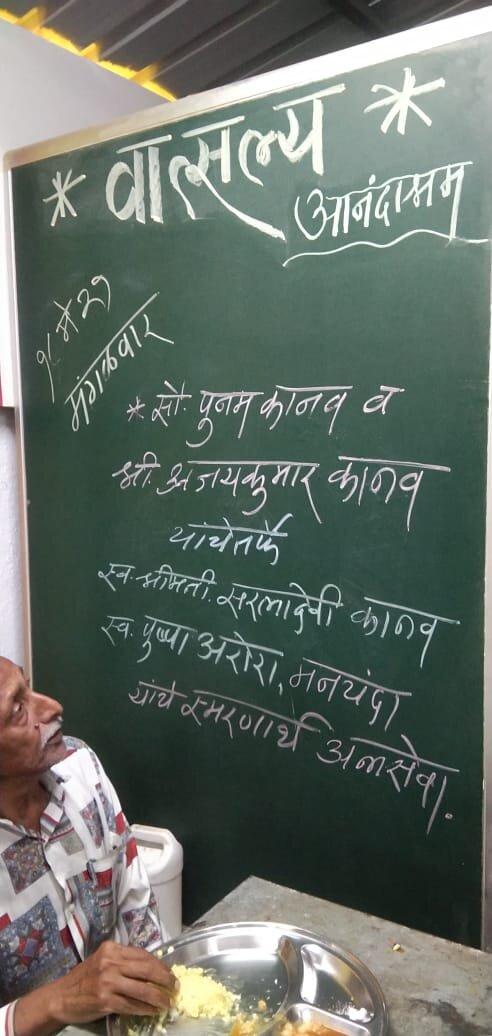 * वात्सल्य *
आनंदाश्रम
१८ मे २१
मंगळवार
* सौ. पुनम कानव व
श्री. अजयकुमार कानव
यांचेतर्फे
स्व. श्रीमती. सरलादेवी कानव
स्व. पुष्पा अरोरा, मनचंदा
यांचे स्मरणार्थ अन्नसेवा.